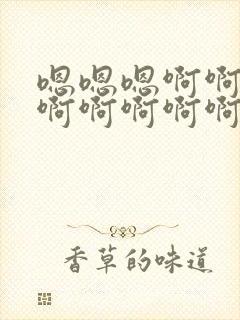 嗯嗯嗯啊啊
啊啊啊啊啊
香草的味道